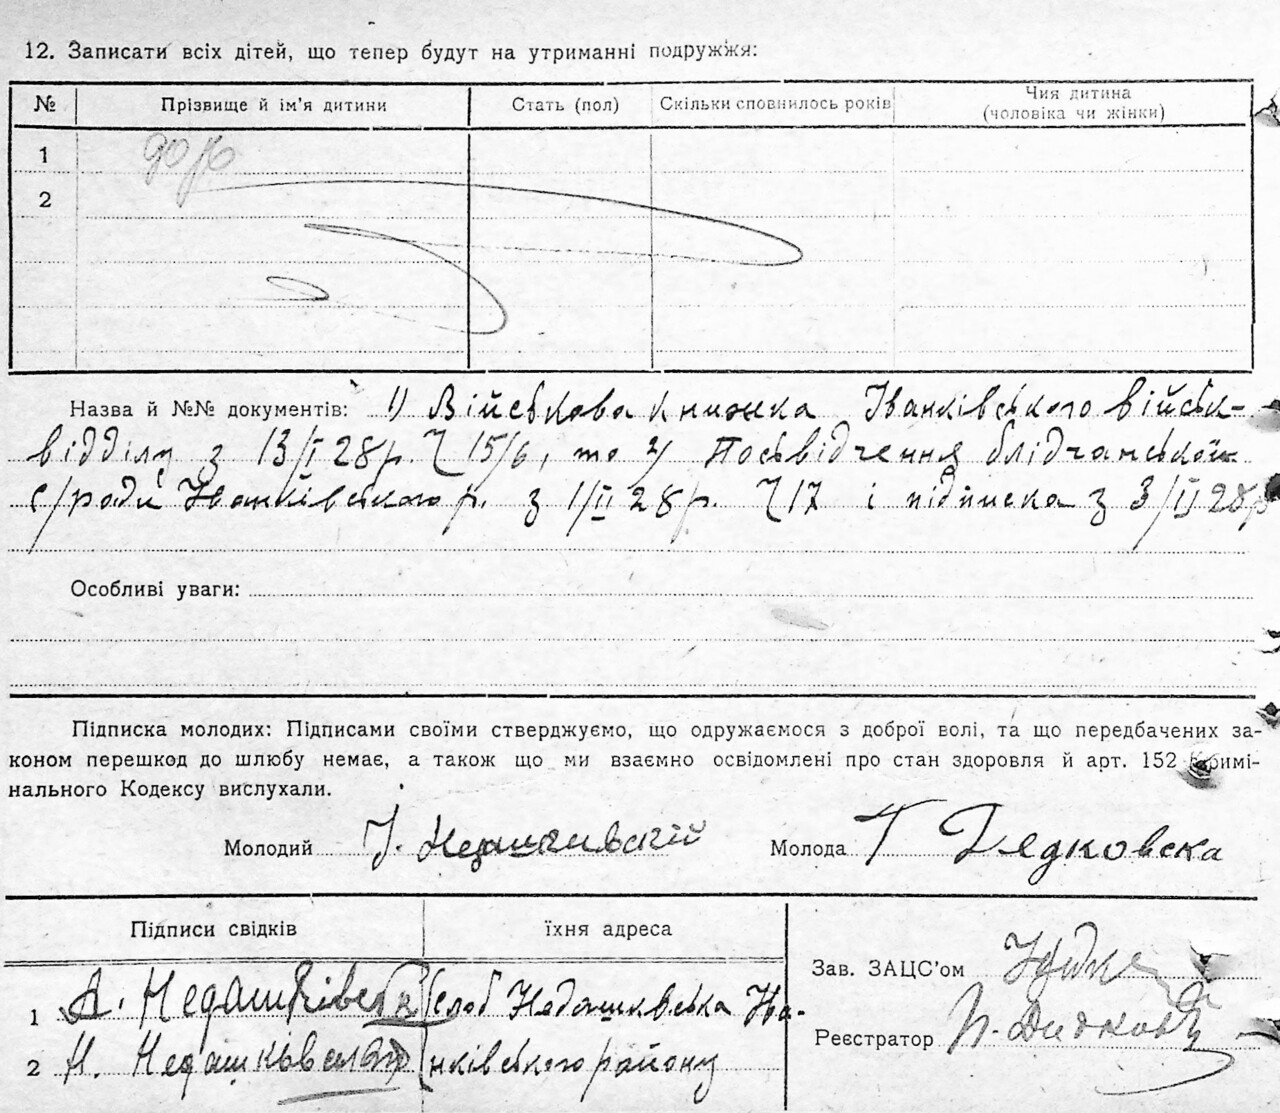 12. Записати всіх дітей, що тепер будут на утриманні подружжя:
№ Прізвище й ім'я дитини Стать (пол) Скільки сповнилось років Чия дитина
(чоловіка чи жінки)
1
2
Назва й №№ документів: 1) Військова книжка Іванківського військ-
відділу з 13/I 28р. Ч 15/6, то 2) Посвідчення блідчанської
с/ради Іванківського р. з 1/II 28р. Ч 17 і підписка з 3/II 28р
Особливі уваги:
Підписка молодих: Підписами своїми стверджуємо, що одружаємося з доброї волі, та що передбачених за-
коном перешкод до шлюбу немає, а також що ми взаємно освідомлені про стан здоровля й арт. 152 Кримі-
нального Кодексу вислухали.
Молодий Молода Т Дядковска
Підписи свідків їхня адреса
Зав. ЗАЦС'ом
1 А. Недашківськ слоб Недашковська Іва-
Реєстратор
2 Н. нківського району